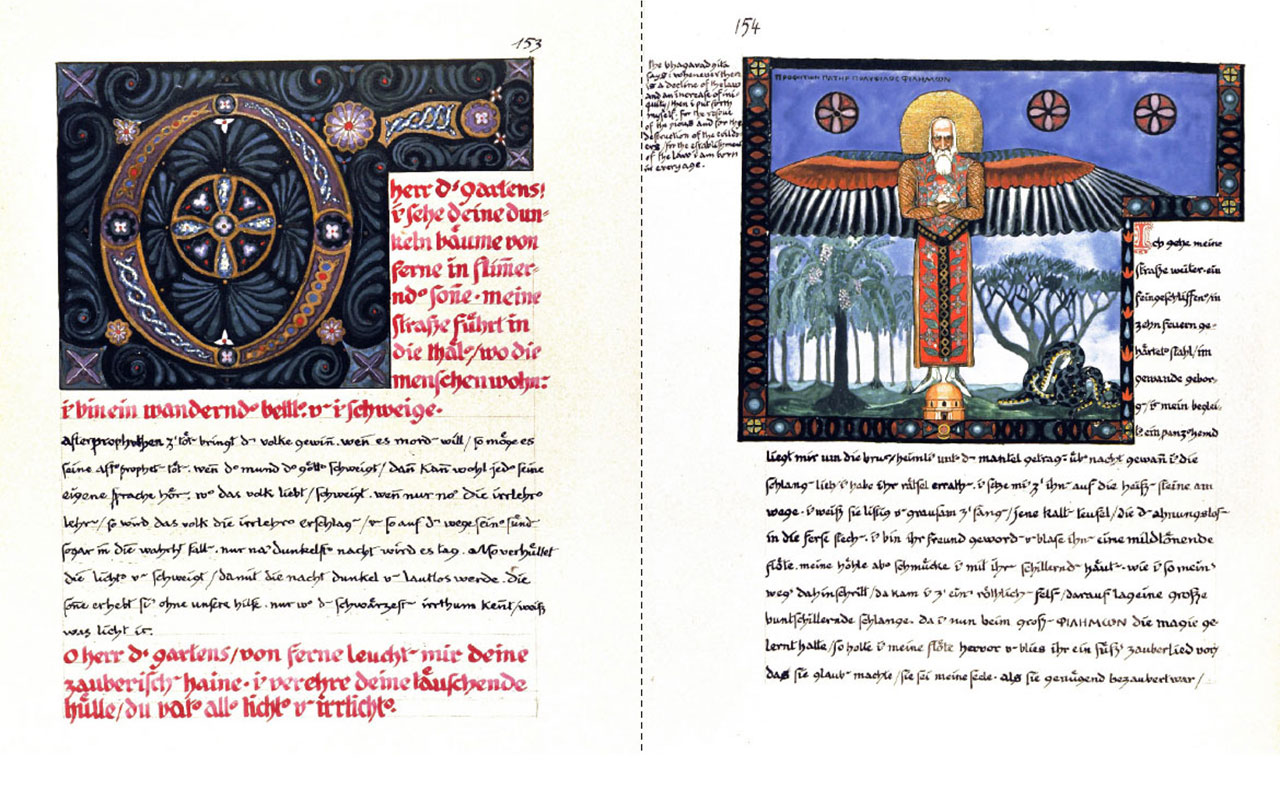 153
herr d' gartens!
i' sehe deine dun-
keln bäume von
ferne in flim̄er-
nd' son̄e · meine
straße führt in
die thäl'/wo die
menschen wohn:
i' bin ein wandernd' bettl' v i' schweige ·
afterprophethen z' töt' bringt d' volke gewin̄ . wen̄ es mord will / so möge es
seine aft'prophet töt . wen̄ d' mund d' gött' schweigt / dan̄ kan̄ wohl jed' seine
eigene sprache hör . wo das volk liebt / schweigt . wen̄ nur no' die irrlehr'
lehr / so wird das volk die irrlehr' erschlag / v so auf d' wege sein' sünd
sogar in die wahrht fall . nur na' dunkelst' nacht wird es tag . also verhüllet
die licht' v schweigt / damit die nacht dunkel v lautlos werde . die
son̄e erhebt si' ohne unsere hilfe . nur wo d' schwärzest irrthum ken̄t / weiß
was licht ist .
O herr d' gartens / von ferne leucht mir deine
zauberisch haine · i' verehre deine täuschende
hülle / du vat' all' licht' v irrlicht' .
154
the bhagavadgita
says: whenever there
is a decline of the law
and an increase of ini-
quity / then i put forth
myself. for the rescue
of the pious and for the
destruction of the evildo
ers / for the establishment
of the law i am born
in every age .
ΠΡΟΦΗΤΩΝ ΠΑΤΗΡ ΠΟΛΥΦΙΛΟΣ ΦΙΛΗΜΩΝ
Ich gehe meine
straße weiter · ein
feingeschliffen / in
zehn feuern ge-
härtet stahl / im
gewande gebor-
g / i' mein beglei-
t · ein panz'hemd
liegt mir um die brust / heimli' unt' d' mantel getrag · üb' nacht gewan̄ i' die
schlang lieb / i' habe ihr rätsel errath · i' setze mi' z' ihn auf die heiß steine am
wege · i' weiß sie listig v grausam z' fang / jene kalt teufel / die d' ahnungslos
in die ferse stech · i' bin ihr freund geword v blase ihn eine mildtönende
flöte . meine höhle ab' schmücke i' mit ihr schillernd häut · wie i' so mein
weg dahinschritt / da kam i' z' ein röthlich fels / darauf lag eine große
buntschillernde schlange · da i' nun beim groß ΦΙΛΗΜΩΝ die magie ge-
lernt hatte / so holte i' meine flöte hervor v blies ihr ein süß' zauberlied vor
das sie glaub machte / sie sei meine seele . als sie genügend bezaubert war /